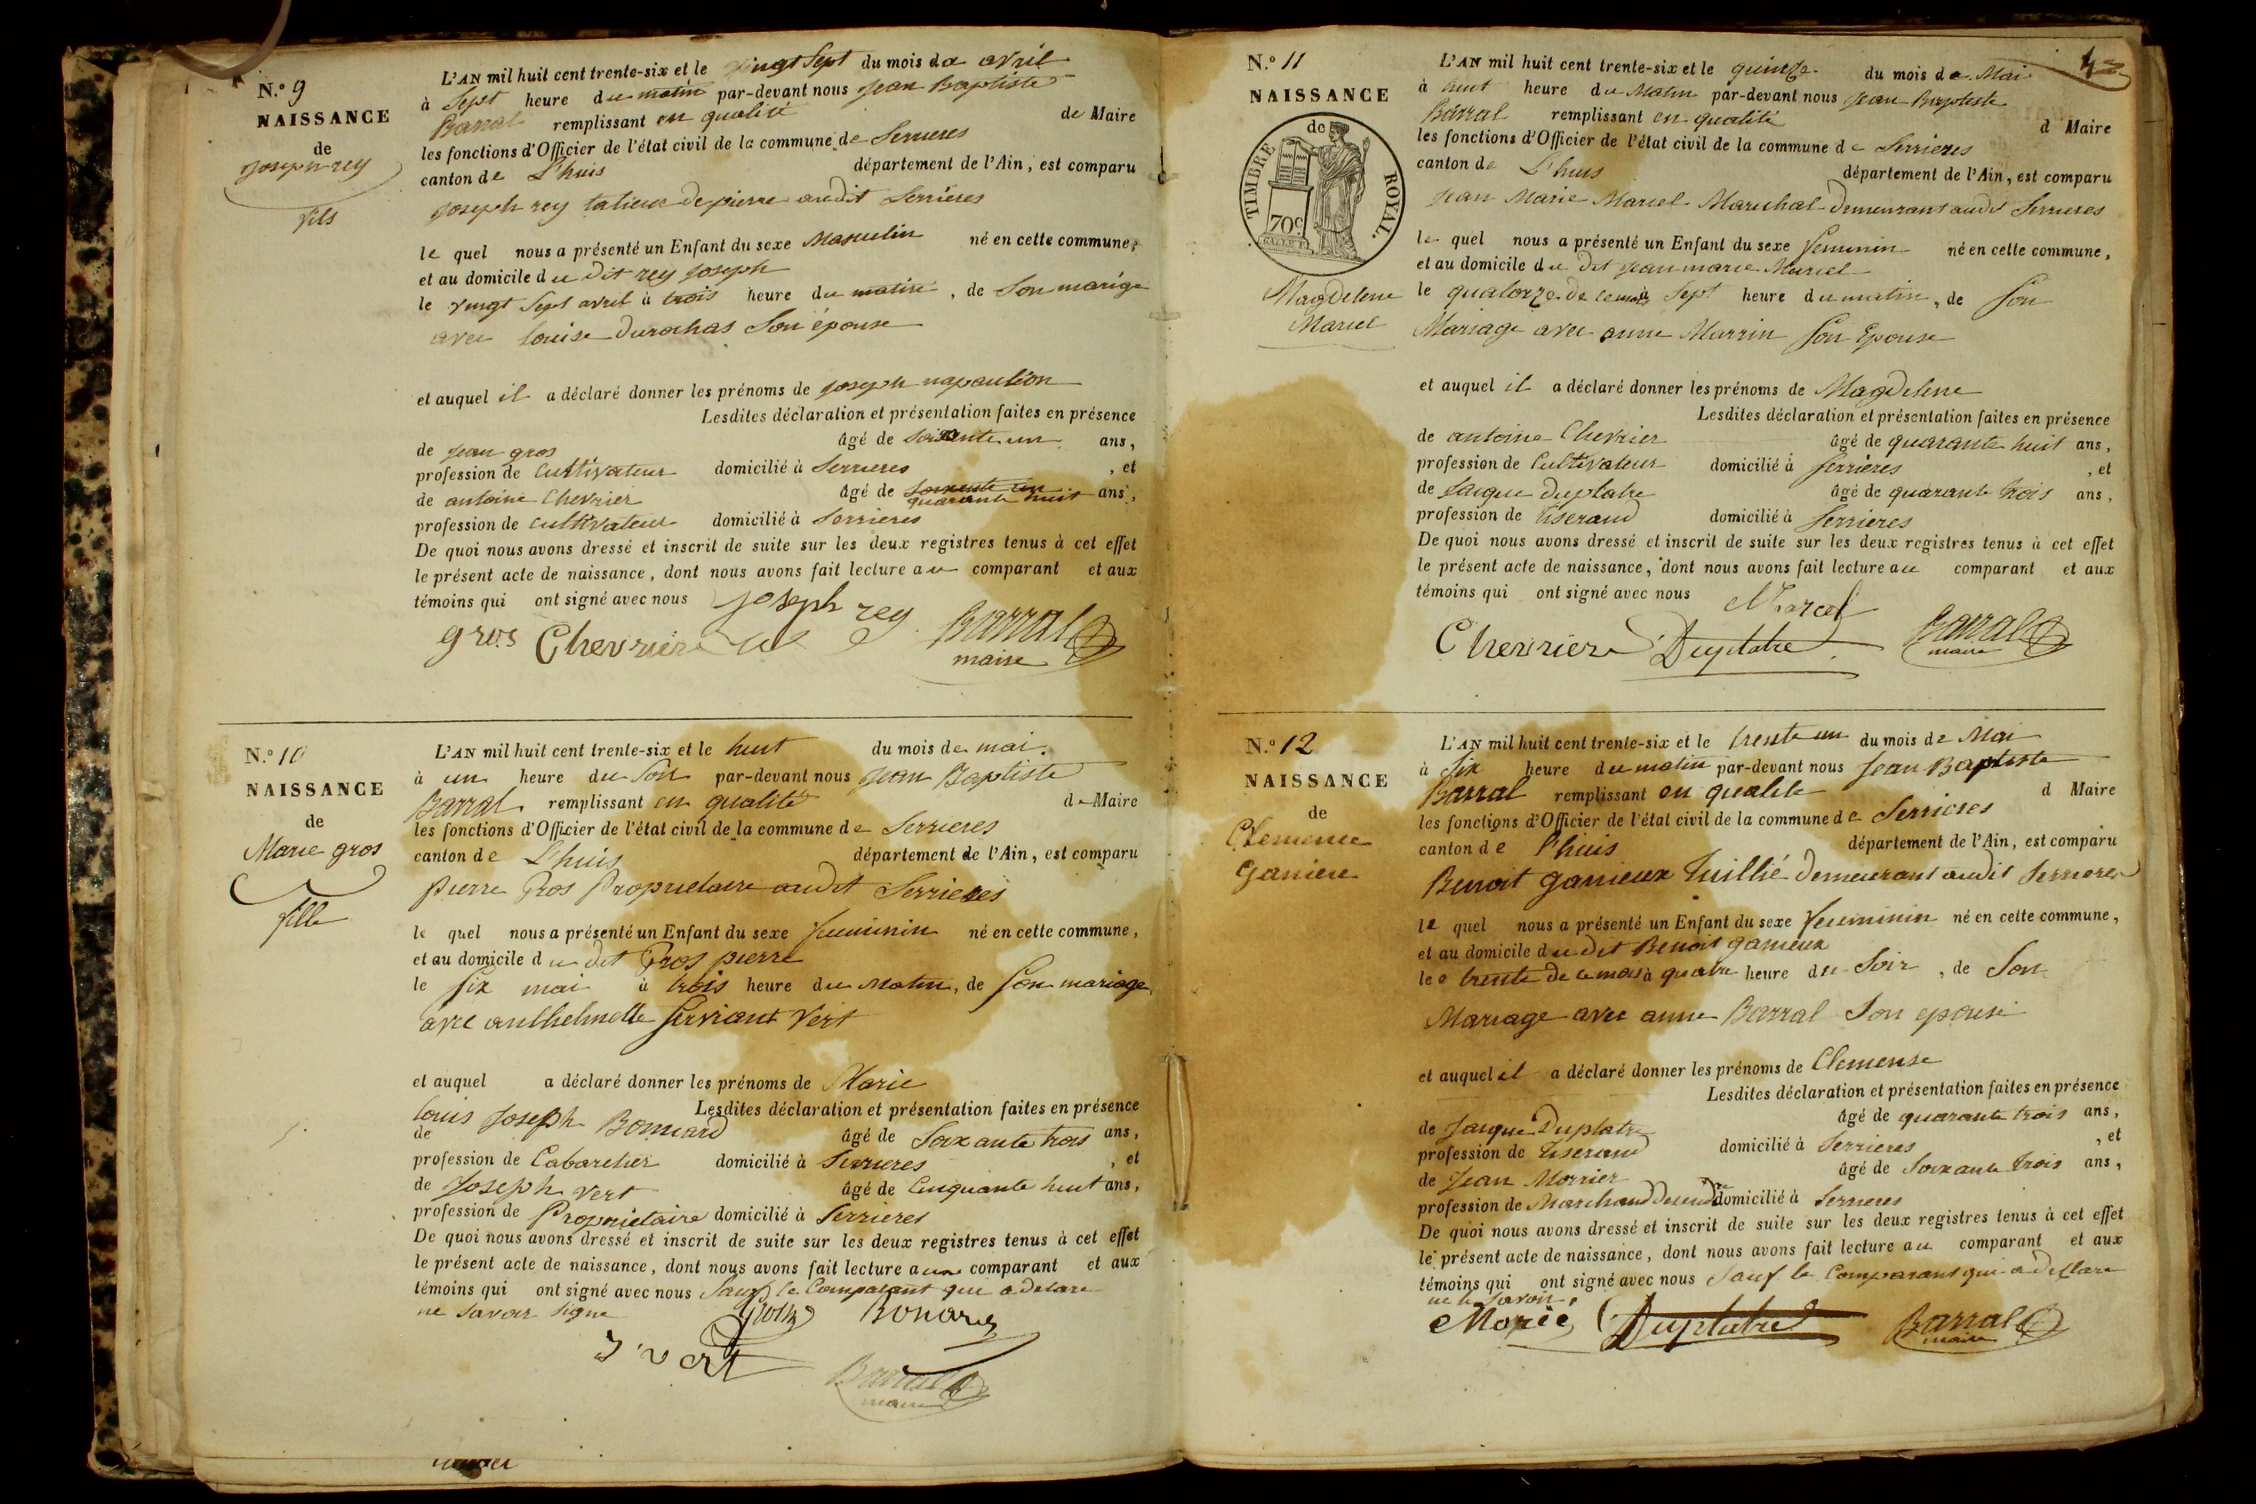 N.º 9
NAISSANCE
de
joseph rey
fils
L'AN mil huit cent trente-six et le vingt Sept du mois de avril
à Sept heure du matin par-devant nous jean Baptiste
Barral remplissant en qualité de Maire
les fonctions d'Officier de l'état civil de la commune de Serrieres
canton de L'huis département de l'Ain, est comparu
joseph rey tatieur de pierre audit Serrieres
le quel nous a présenté un Enfant du sexe Masculin né en cette commune,
et au domicile du dit rey joseph
le vingt Sept avril à trois heure du matin, de Son mariage
avec louise Durochas Son épouse
et auquel il a déclaré donner les prénoms de joseph napauléon
Lesdites déclaration et présentation faites en présence
de jean gros âgé de soixante un ans,
profession de cultivateur domicilié à Serrieres, et
de antoine Chevrier âgé de soixante un quarante huit ans,
profession de cultivateur domicilié à Serrieres
De quoi nous avons dressé et inscrit de suite sur les deux registres tenus à cet effet
le présent acte de naissance, dont nous avons fait lecture au comparant et aux
témoins qui ont signé avec nous joseph rey
gros Chevrier Barral
maire
N.º 10
NAISSANCE
de
Marie gros
fille
L'AN mil huit cent trente-six et le huit du mois de mai.
à un heure du Soir par-devant nous jean Baptiste
Barral remplissant en qualité de Maire
les fonctions d'Officier de l'état civil de la commune de Serrieres
canton de L'huis département de l'Ain, est comparu
pierre Gros Proprietaire audit Serrieres
le quel nous a présenté un Enfant du sexe feuminin né en cette commune,
et au domicile du dit Gros pierre
le Six mai à trois heure du Matin, de Son mariage
avec anthelmette Serviant Vert
et auquel a déclaré donner les prénoms de Marie
Lesdites déclaration et présentation faites en présence
de louis Joseph Bonnard âgé de Soixante trois ans,
profession de Cabaretier domicilié à Serrieres, et
de Joseph vert âgé de Cinquante huit ans,
profession de Proprietaire domicilié à Serrieres
De quoi nous avons dressé et inscrit de suite sur les deux registres tenus à cet effet
le présent acte de naissance, dont nous avons fait lecture au comparant et aux
témoins qui ont signé avec nous Sauf le Comparant que a delare
ne Savoir Signe Bonard
J vert
Barral
maire
N.º 11
NAISSANCE
de
TIMBRE ROYAL.
70c
Magdelene
Marcel
L'AN mil huit cent trente-six et le quinze du mois de Mai
à huit heure du Matin par-devant nous Jean Baptiste
Barral remplissant en qualité d Maire
les fonctions d'Officier de l'état civil de la commune de Serrieres
canton de L'huis département de l'Ain, est comparu
jean Marie Marcel Marechal demeurant audit Serrieres
le quel nous a présenté un Enfant du sexe feminin né en cette commune,
et au domicile du dit jean marie Marcel
le quatorze de ce mois à Sept heure du matin, de Son
Mariage avec anne Murrin Son Epouse
et auquel il a déclaré donner les prénoms de Magdelene
Lesdites déclaration et présentation faites en présence
de antoine Chevrier âgé de quarante huit ans,
profession de Cultivateur domicilié à Serrieres, et
de Jacque Duplatre âgé de quarante trois ans,
profession de tiserand domicilié à Serrieres
De quoi nous avons dressé et inscrit de suite sur les deux registres tenus à cet effet
le présent acte de naissance, dont nous avons fait lecture au comparant et aux
témoins qui ont signé avec nous Marcel
Chevrier Duplatre Barral
maire
N.º 12
NAISSANCE
de
Clemence
Ganiere
L'AN mil huit cent trente-six et le trente un du mois de Mai
à Six heure du matin par-devant nous Jean Baptiste
Barral remplissant en qualite d Maire
les fonctions d'Officier de l'état civil de la commune de Serrieres
canton de l'huis département de l'Ain, est comparu
Benoit ganieux tuillié demeurant audit Serrieres
le quel nous a présenté un Enfant du sexe feuminin né en cette commune,
et au domicile du dit Benoit ganieux
le trente de ce mois à quatre heure du Soir, de Son
Mariage avec anne Barral Son epouse
et auquel il a déclaré donner les prénoms de Clemense
Lesdites déclaration et présentation faites en présence
de Jacque Duplatre âgé de quarante trois ans,
profession de tiserand domicilié à Serrieres, et
de Jean Morrier âgé de Soixante trois ans,
profession de Marchand domicilié à Serrieres
De quoi nous avons dressé et inscrit de suite sur les deux registres tenus à cet effet
le présent acte de naissance, dont nous avons fait lecture au comparant et aux
témoins qui ont signé avec nous Sauf le Comparant qui a declare
ne le Savoir.
Duplatre Barral
maire